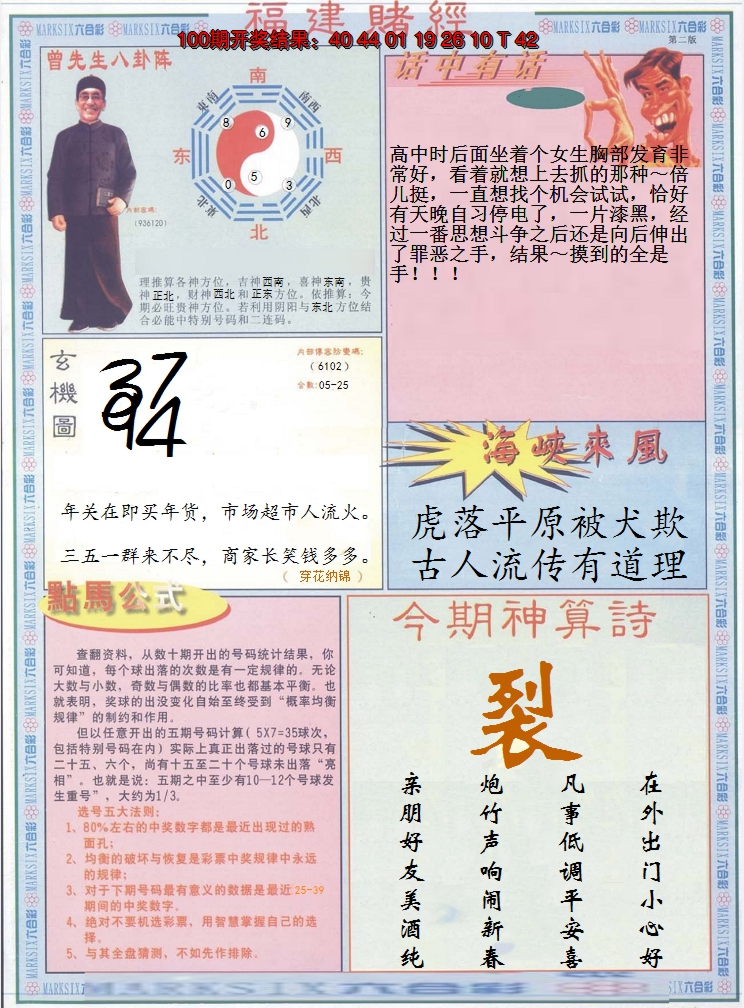 福建賭經
100期开奖结果：40 44 01 19 26 10 T 42
MARKSIX六合彩
MARKSIX六合彩
MARKSIX六合彩
MARKSIX六合彩
第二版
曾先生八卦阵
南
东南
西南
8
6
9
东
西
0
5
3
东北
西北
北
内部密碼:
(936120)
理推算各神方位，吉神西南，喜神东南，贵
神正北，财神西北和正东方位。依推算：今
期必旺贵神方位。若利用阴阳与东北方位结
合必能中特别号码和二连码。
话中有话
高中时后面坐着个女生胸部发育非
常好，看着就想上去抓的那种～倍
儿挺，一直想找个机会试试，恰好
有天晚自习停电了，一片漆黑，经
过一番思想斗争之后还是向后伸出
了罪恶之手，结果～摸到的全是
手！！！
玄機圖
内部傳密防變碼:
(6102)
合數:05-25
年关在即买年货，市场超市人流火。
三五一群来不尽，商家长笑钱多多。
（ 穿花纳锦 ）
海峽來風
虎落平原被犬欺
古人流传有道理
點馬公式
查翻资料，从数十期开出的号码统计结果，你
可知道，每个球出落的次数是有一定规律的。无论
大数与小数，奇数与偶数的比率也都基本平衡。也
就表明，奖球的出没变化自始至终受到“概率均衡
规律”的制约和作用。
但以任意开出的五期号码计算( 5X7=35球次，
包括特别号码在内) 实际上真正出落过的号球只有
二十五、六个，尚有十五至二十个号球未出落“亮
相”。也就是说：五期之中至少有10—12个号球发
生重号”，大约为1/3。
选号五大法则：
1、80%左右的中奖数字都是最近出现过的熟
面孔；
2、均衡的破坏与恢复是彩票中奖规律中永远
的规律；
3、对于下期号码最有意义的数据是最近25-39
期间的中奖数字。
4、绝对不要机选彩票，用智慧掌握自己的选
择。
5、与其全盘猜测，不如先作排除。
今期神算詩
裂
在外出门小心好
凡事低调平安喜
炮竹声响闹新春
亲朋好友美酒纯